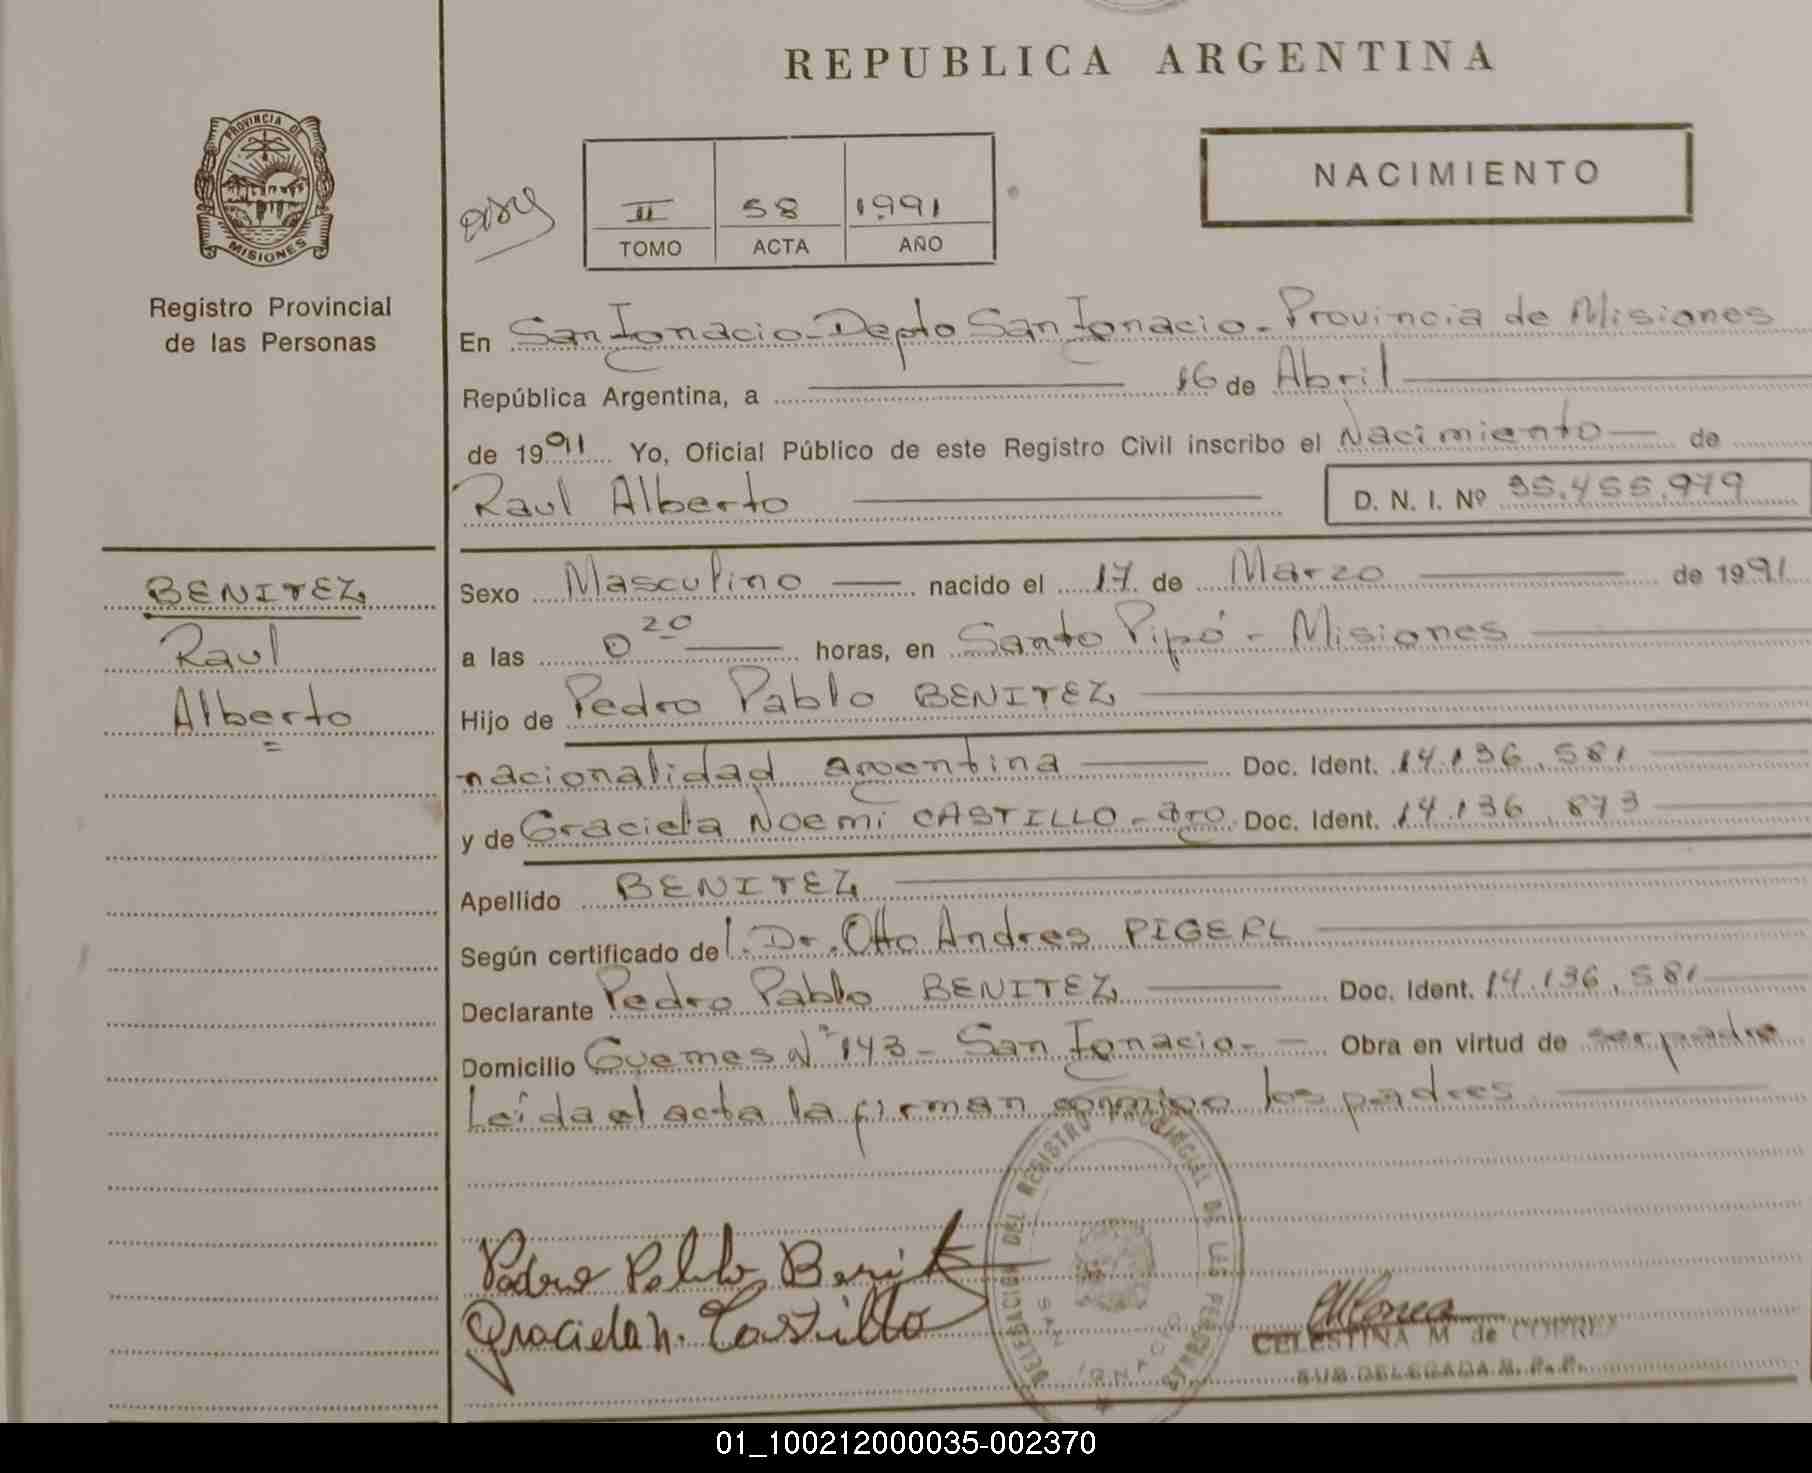 REPUBLICA ARGENTINA
PROVINCIA DE
MISIONES
Registro Provincial
de las Personas
NACIMIENTO
II 58 1991
TOMO ACTA AÑO
En San Ignacio-Depto San Ignacio-Provincia de Misiones
República Argentina, a 16 de Abril
de 1991 Yo, Oficial Público de este Registro Civil inscribo el Nacimiento de
Raul Alberto D. N. I. Nº 35.455.979
BENITEZ
Raul
Alberto
Sexo Masculino nacido el 17 de Marzo de 1991
a las 0 20 horas, en Santo Pipó - Misiones
Hijo de Pedro Pablo BENITEZ
nacionalidad argentina Doc. Ident. 14.136.581
y de Graciela Noemi CASTILLO - Doc. Ident. 14.136.873
Apellido BENITEZ
Según certificado del Dr. Otto Andres PIGERL
Declarante Pedro Pablo BENITEZ Doc. Ident. 14.136.581
Domicilio Guemes Nº 143 - San Ignacio - Obra en virtud de ser padre
Leída el acta la firman conmigo los padres
DELEGACION DEL REGISTRO PROVINCIAL DE LAS PERSONAS
SAN IGNACIO
Pedro Pablo Benitez
Graciela N. Castillo
CELESTINA M de CORREA
SUB DELEGADA R. P. P.
01_100212000035-002370